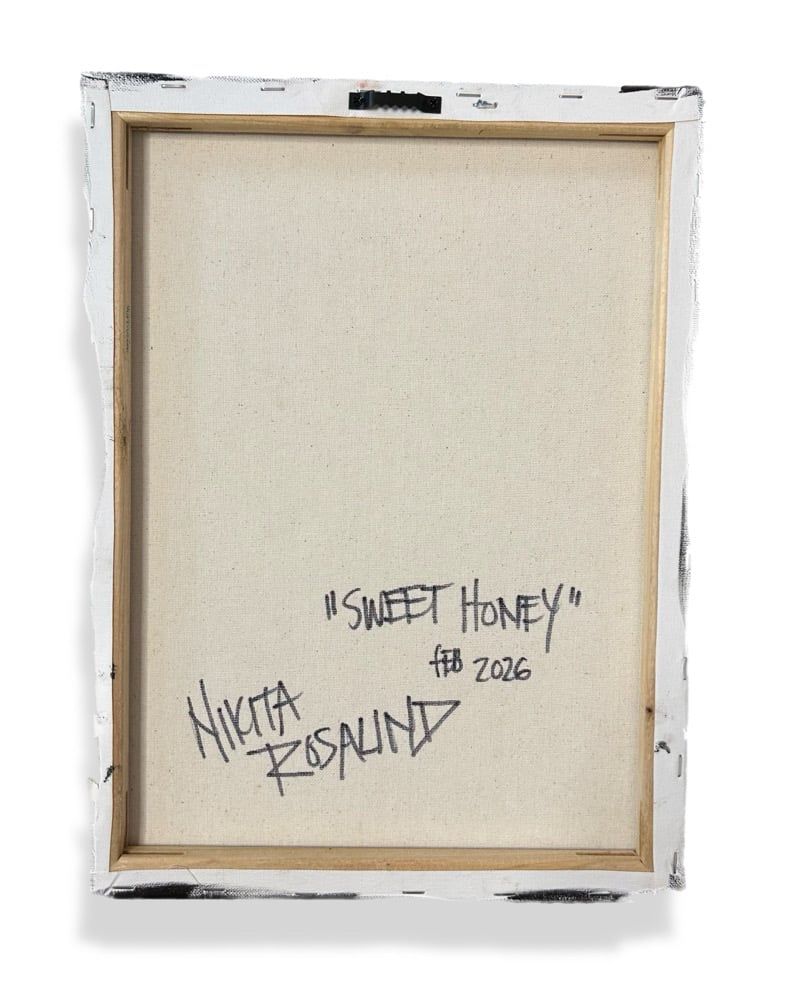 "SWEET HONEY"
FEB 2026
NIKITA
ROSALIND